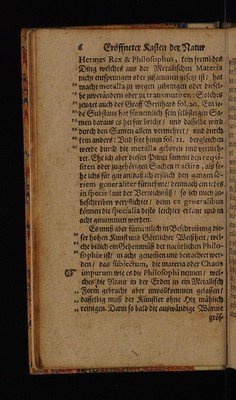 6 Eröffneter Kasten der Natur
Hermes Rex & Philosophus, kein fremdes
Ding welches aus der Metallischen Materia
nicht entsprungen oder zusammen gesetzt ist / hat
macht metalla zu wegen zubringen oder diesel-
be zuverändern oder zu transmutiren: Solches
zeuget auch der Graff Bernhard fol. 20. Ein je-
de Substanz hat fürnemlich sein selbsteigen Sa-
men daraus es herfür bricht / und dasselbe wird
durch den Samen allein vermehret / und durch
kein anders: Und setzt hinzu fol. 21. dergleichen
werde durch die metalla geboren und vermeh-
ret. Ehe ich aber diesen Punct ferner den requi-
siten oder zugehörigen Sachen tractire, als se-
he ichs für gut an daß ich erstlich den gantzen se-
riem generaliter fürnehme / demnach ein iedes
in specie laut der Verzeichnüß / so ich mich zu-
beschreiben verpflichtet / denn ex generalibus
können die specialia desto leichter erkant und in
acht genommen werden.
Es muß aber fürnemlich in Beschreibung die-
ser hohen Kunst und Göttlicher Weißheit / wel-
che billich ein Geheimnüß der natürlichen Philo-
sophiæ ist / in acht genomen und betrachtet wer-
den / das subiectum, die materia oder Chaos
impurum wie es die Philosophi nennen / wel-
ches die Natur in der Erden in ein Metallisch
Form gebracht aber unvollkommen gelassen /
dasselbig muß der Künstler ohne Hitz mählich
reinigen. Dann so bald die auswändige Wärme
grös-